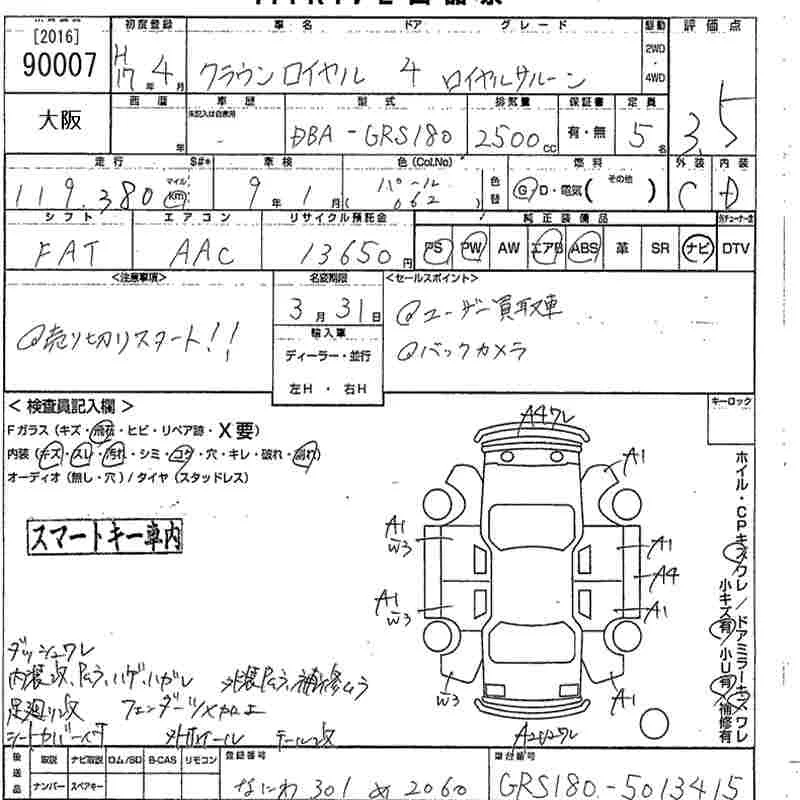 [2016]
90007
初度登録 車名 ドア グレード 駆動 評価点
H17年4月 クラウン ロイヤル 4 ロイヤルサルーン 2WD・4WD 3.5
大阪
西暦 車歴 型式 排気量 保証書 定員
年 未記入は自家用 - DBA-GRS180 2500cc 有・無 5名
走行 S#* 車検 色(Col.No) 燃料 外装 内装
119,380 マイル km 9年1月 パール (062) 色替 G・D・電気( その他 ) C D
シフト エアコン リサイクル預託金 純正装備品
FAT AAC 13650円 PS PW AW エアB ABS 革 SR ナビ DTV
<注意事項> 名変期限 <セールスポイント>
売り切りスタート!! 3月31日 ユーザー買取車
輸入車 バックカメラ
ディーラー・並行
左H・右H
<検査員記入欄> キーロック
Fガラス(キズ・飛石・ヒビ・リペア跡・X要)
内装(キズ・スレ・汚れ・シミ・コゲ・穴・キレ・破れ・割れ)
オーディオ(無し・穴)/タイヤ(スタッドレス)
スマートキー車内
A4ワレ
A1
A1
W3
A1
A4
A1
W3
A1
W3
A1
ホイル・CPキズワレ/ドアミラーキズワレ
小キズ有/小U有/補修有
ダッシュワレ
内装改、Pムラ、ハゲ、ハガレ 外装Pムラ、補修ムラ
足廻り改 フェンダーツメ加工
シートカバー付 外ホイール テール改
後送品 取説 ナビ取説 ロム/SD B-CAS リモコン 登録番号 車台番号
ナンバー スペアキー なにわ 301 め 2060 GRS180-5013415